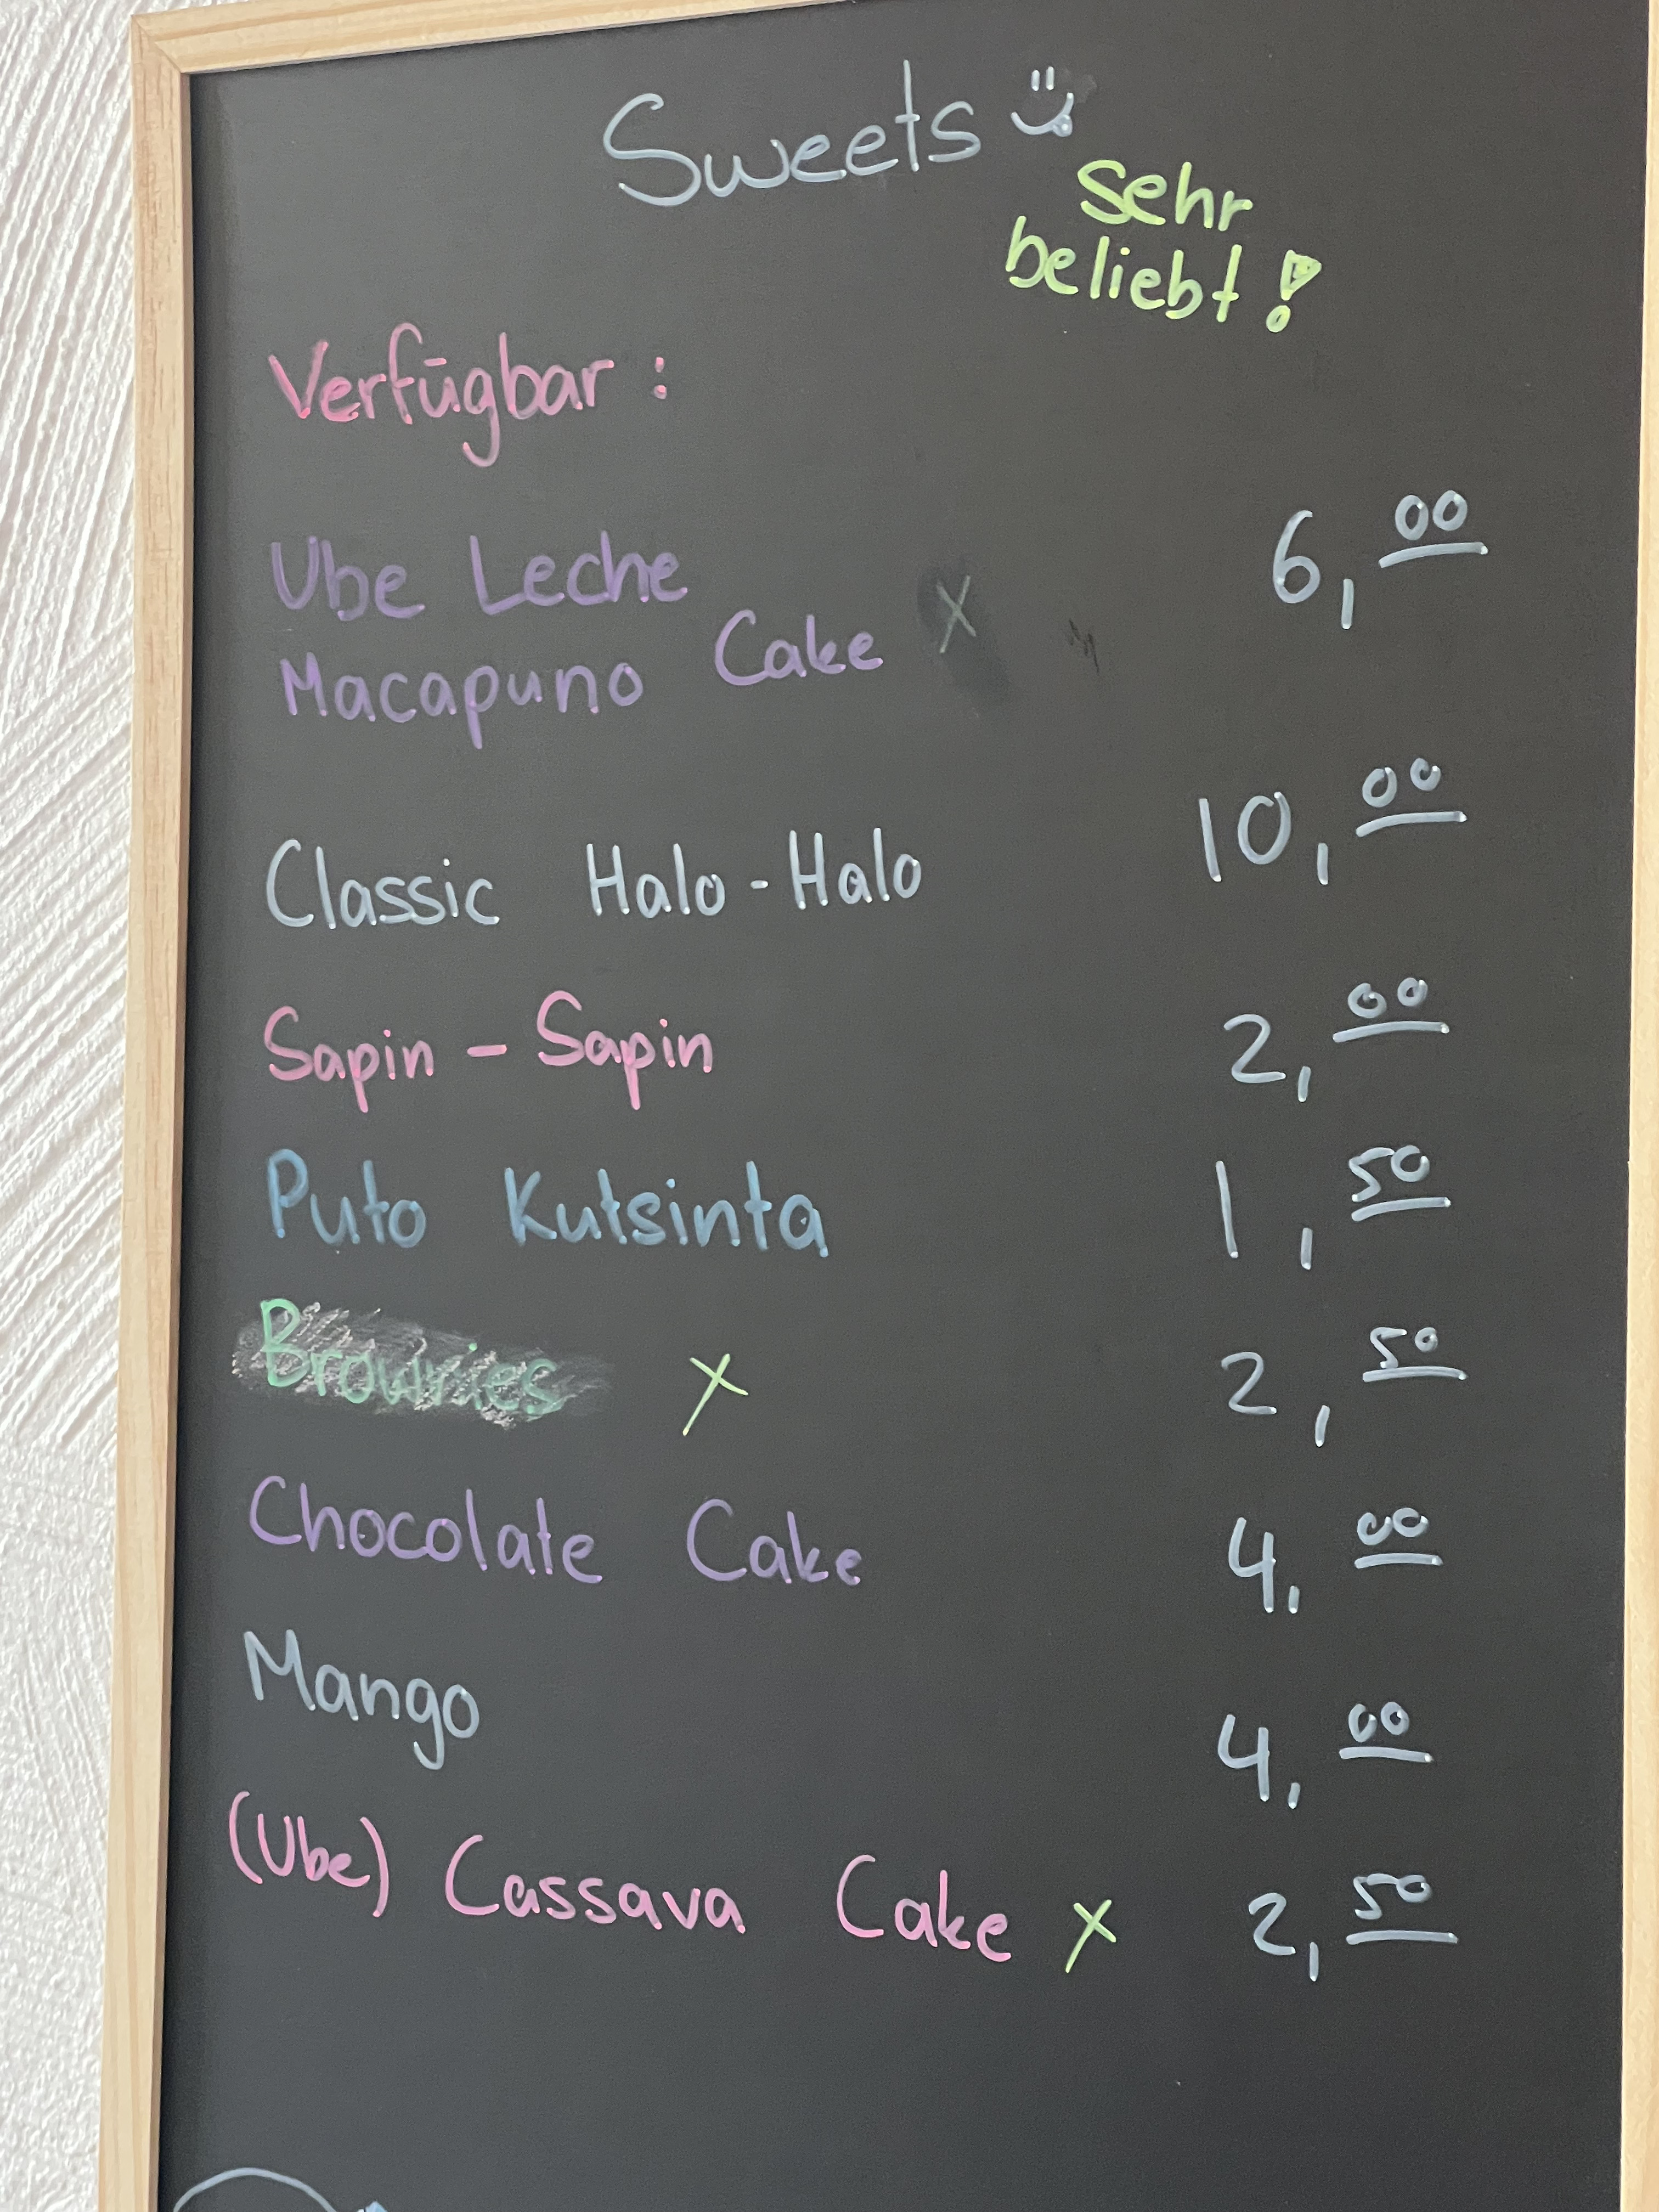 Sweets
sehr
beliebt!
Verfügbar:
Ube Leche
Macapuno Cake x 6,00
Classic Halo-Halo 10,00
Sapin-Sapin 2,00
Puto Kutsinta 1,50
Brownies x 2,50
Chocolate Cake 4,00
Mango 4,00
(Ube) Cassava Cake x 2,50